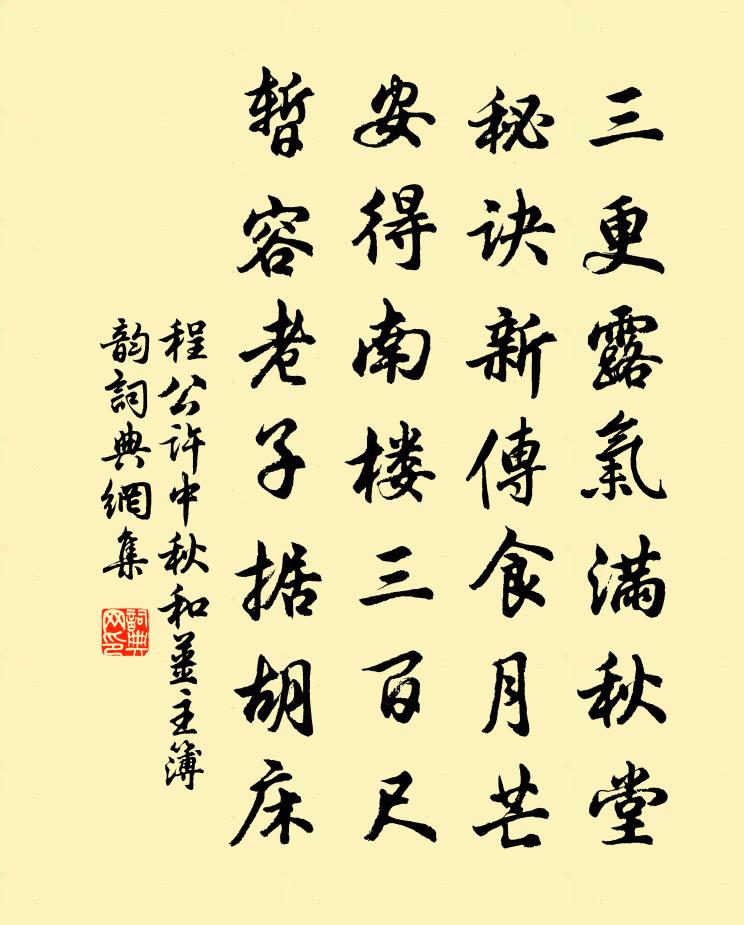 三更露氣滿秋堂
秘訣新傳食月芒
安得南楼三百尺
暫容老子据胡床
程公許中秋和薑主簿
韵詞典網集
詞典網印